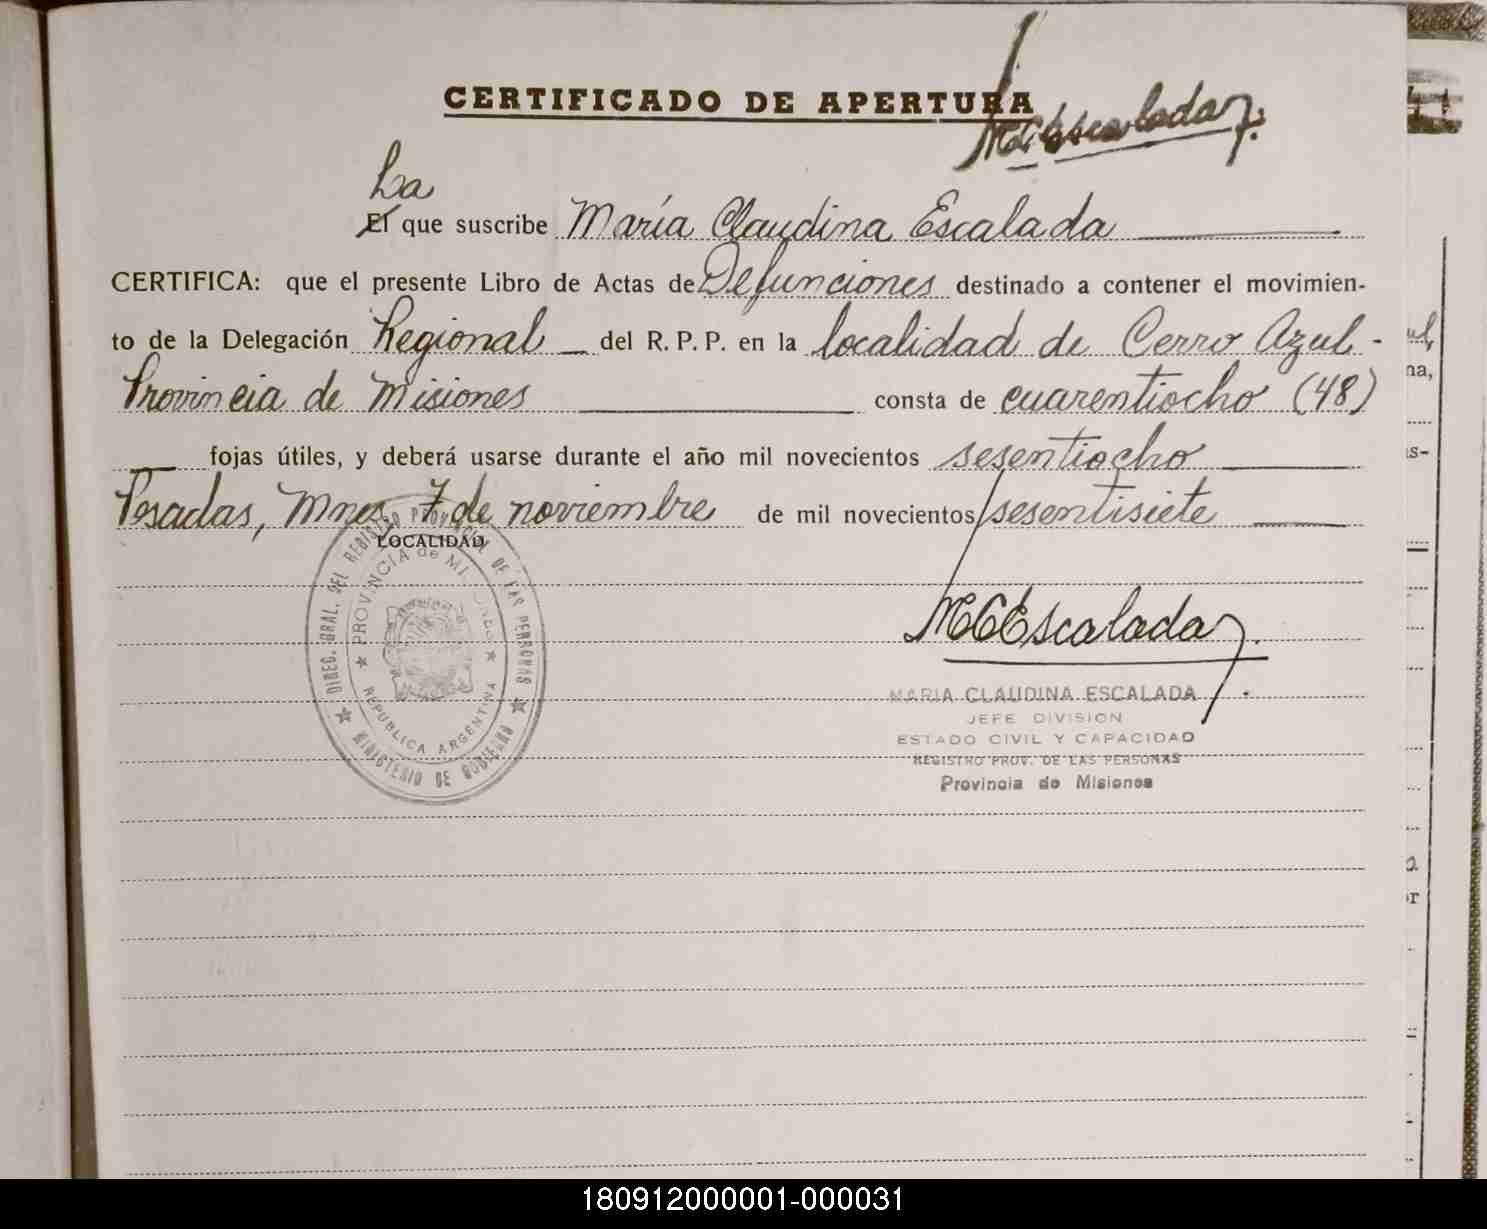 CERTIFICADO DE APERTURA
MCEscalada
La
El que suscribe María Claudina Escalada
CERTIFICA: que el presente Libro de Actas de Defunciones destinado a contener el movimien-
to de la Delegación Regional del R. P. P. en la localidad de Cerro Azul -
Provincia de Misiones consta de cuarentiocho (48)
fojas útiles, y deberá usarse durante el año mil novecientos sesentiocho
Posadas, Mnes, 7 de noviembre de mil novecientos sesentisiete
LOCALIDAD
DIREC. GRAL. DEL REGISTRO PROVINCIAL DE LAS PERSONAS
PROVINCIA de MISIONES
REPUBLICA ARGENTINA
MINISTERIO DE GOBIERNO
MCEscalada
MARIA CLAUDINA ESCALADA
JEFE DIVISION
ESTADO CIVIL Y CAPACIDAD
REGISTRO PROV. DE LAS PERSONAS
Provincia de Misiones
180912000001-000031